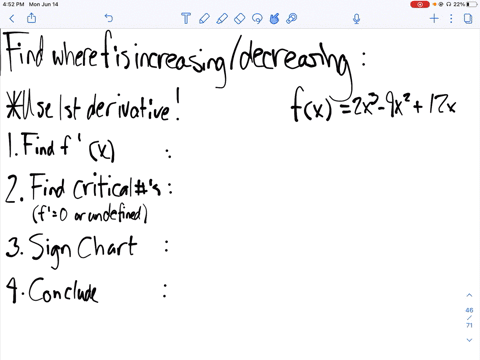 4:52 PM Mon Jun 14
22%
Find where f is increasing/decreasing :
*Use 1st derivative!
f(x) = 2x³ - 9x² + 12x
1. Find f'(x) :
2. Find Critical #'s :
(f'=0 or undefined)
3. Sign Chart :
4. Conclude :
46
/
71